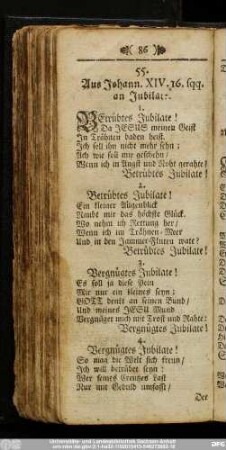 86
55.
Aus Johann. XIV. 16. sqq.
an Jubilate.
1.
BEtrübtes Jubilate!
Da JESUS meinen Geist
In Trähnen baden heist.
Ich soll ihn nicht mehr sehn:
Ach wie soll mir geschehn/
Wenn ich in Angst und Noht gerahte!
Betrübtes Jubilate!
2.
Betrübtes Jubilate!
Ein kleiner Augenblick
Nimbt mir das höchste Glück.
Wo nehm ich Rettung her/
Wenn ich im Trähnen-Meer
Und in den Jammer-Fluten wate!
Betrübtes Jubilate!
3.
Vergnügtes Jubilate!
Es soll ja diese Pein
Mir nur ein kleines seyn:
GOTT denkt an seinen Bund/
Und meines JESU Mund
Vergnüget mich mit Trost und Rahte:
Vergnügtes Jubilate!
4.
Vergnügtes Jubilate!
So mag die Welt sich freun/
Ich will betrübet seyn:
Wer seines Creutzes Last
Nur mit Gedult umfasst/
Der